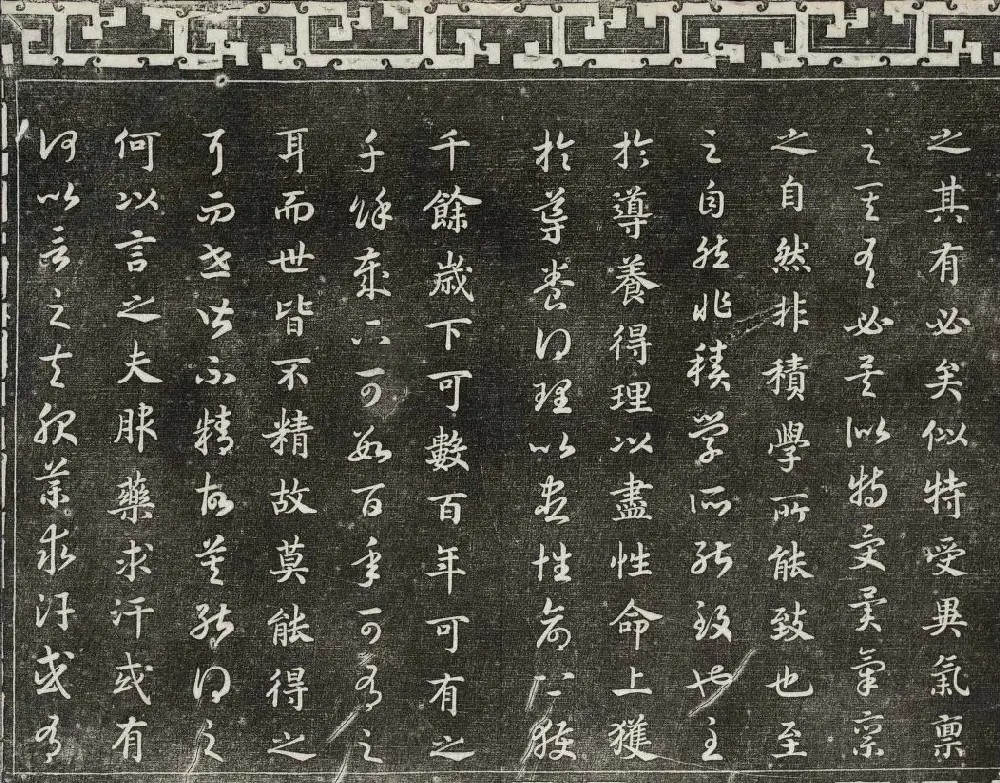 之其有必矣似特受異氣稟
之其有必矣似特受異氣稟
之自然非積學所能致也至
之自然非積學所能致也至
於導養得理以盡性命上獲
於導養得理以盡性命上獲
千餘歲下可數百年可有之
千餘歲下可數百年可有之
耳而世皆不精故莫能得之
耳而世皆不精故莫能得之
何以言之夫服藥求汗或有
何以言之夫服藥求汗或有